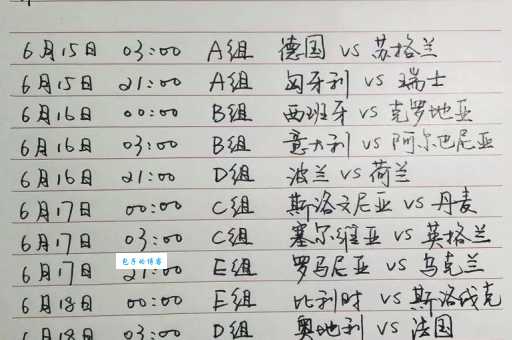 6月15日 03:00 A组 德国 vs 苏格兰
6月15日 21:00 A组 匈牙利 vs 瑞士
6月16日 00:00 B组 西班牙 vs 克罗地亚
6月16日 03:00 B组 意大利 vs 阿尔巴尼亚
6月16日 21:00 D组 波兰 vs 荷兰
6月17日 00:00 C组 斯洛文尼亚 vs 丹麦
6月17日 03:00 C组 塞尔维亚 vs 英格兰
包子的博客
6月17日 21:00 E组 罗马尼亚 vs 乌克兰
6月18日 00:00 E组 比利时 vs 斯洛伐克
6月18日 03:00 D组 奥地利 vs 法国